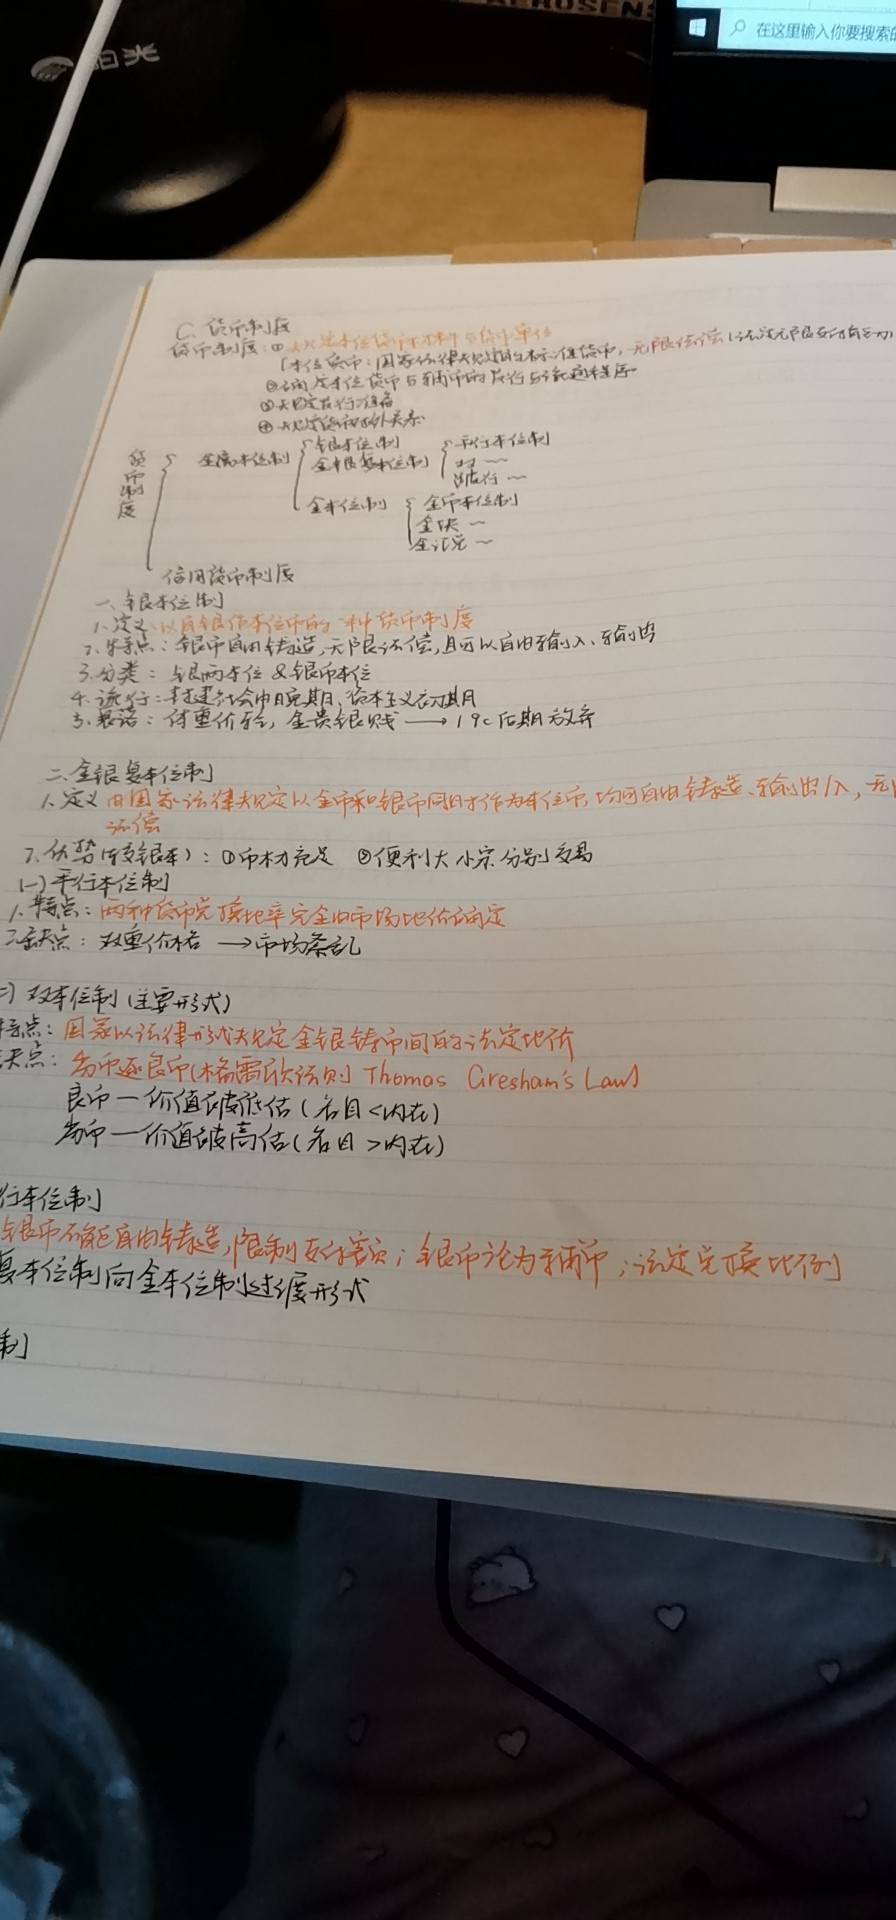 阳光
在这里输入你要搜索的
C. 货币制度
货币制度：① 规定本位货币材料与货币单位
「本位货币：国家法律规定的标准货币，无限法偿（法定无限支付能力）
②确定本位货币与辅币的发行与流通程序
③规定发行准备
④规定货币对外关系
货币制度
金属本位制
银本位制
金银复本位制
平行本位制
双 〜
跛行 〜
金本位制
金币本位制
金块 〜
金汇兑 〜
信用货币制度
一、银本位制
1. 定义：以白银作本位币的一种货币制度
2. 特点：银币自由铸造，无限法偿，且可以自由输入、输出
3. 分类：银两本位 & 银币本位
4. 流行：封建社会中晚期、资本主义初期
5. 衰落：体重价轻，金贵银贱 → 19c后期放弃
二、金银复本位制
1. 定义 由国家法律规定以金币和银币同时作为本位币，均可自由铸造、输出/入，无限
法偿
2. 优势(较银本)：①币材充足 ②便利大小宗分别交易
(一)平行本位制
1. 特点：两种货币兑换比率完全由市场比价确定
2. 缺点：双重价格 → 市场紊乱
二) 双本位制(主要形式)
特点：国家以法律形式规定金银铸币间的法定比价
缺点：劣币逐良币(格雷欣法则 Thomas Gresham's Law)
良币—价值被低估(名目<内在)
劣币—价值被高估(名目>内在)
行本位制
银币不能自由铸造，限制支付额；银币沦为辅币；法定兑换比例
复本位制向金本位制过渡形式
制